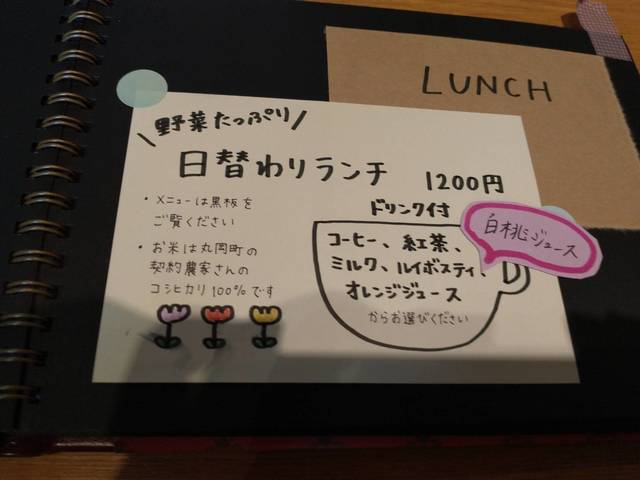 LUNCH
野菜たっぷり
日替わりランチ 1200円
・メニューは黒板を
ご覧ください
・お米は丸岡町の
契約農家さんの
コシヒカリ100%です
ドリンク付
コーヒー、紅茶、
ミルク、ルイボスティ、
オレンジジュース
からお選びください
白桃ジュース